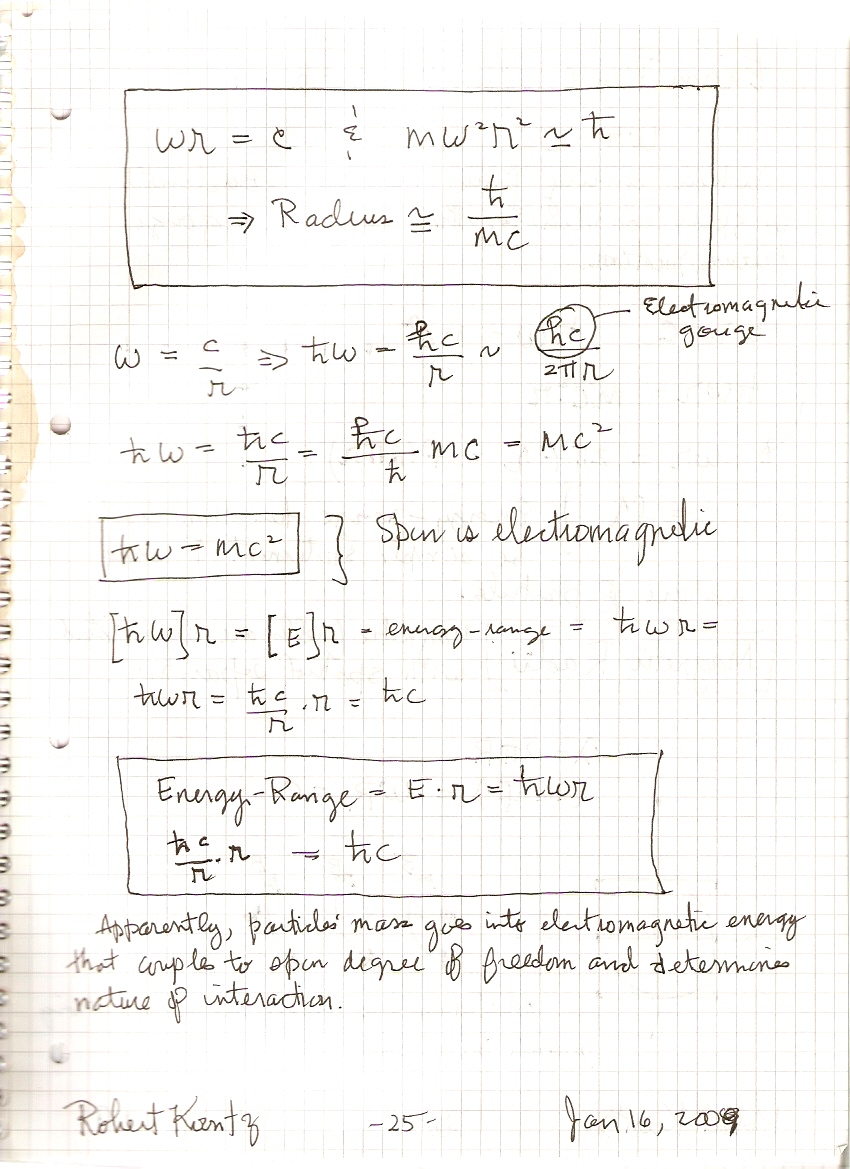 ωr = c & mω²r² ≃ ħ
⇒ Radius ≅ ħ/mc
Electromagnetic
gouge
ω = c/r ⇒ ħω = ħc/r ~ ħc/2πr
ħω = ħc/r = ħc/ħ mc = mc²
ħω = mc² } Spin is electromagnetic
[ħω]r = [E]r - energy-range = ħωr =
ħωr = ħc/r · r = ħc
Energy-Range = E · r = ħωr
ħc/r · r = ħc
Apparently, particles' mass goes into electromagnetic energy
that couples to spin degree of freedom and determines
nature of interaction.
Robert -25- Jan 16, 2009